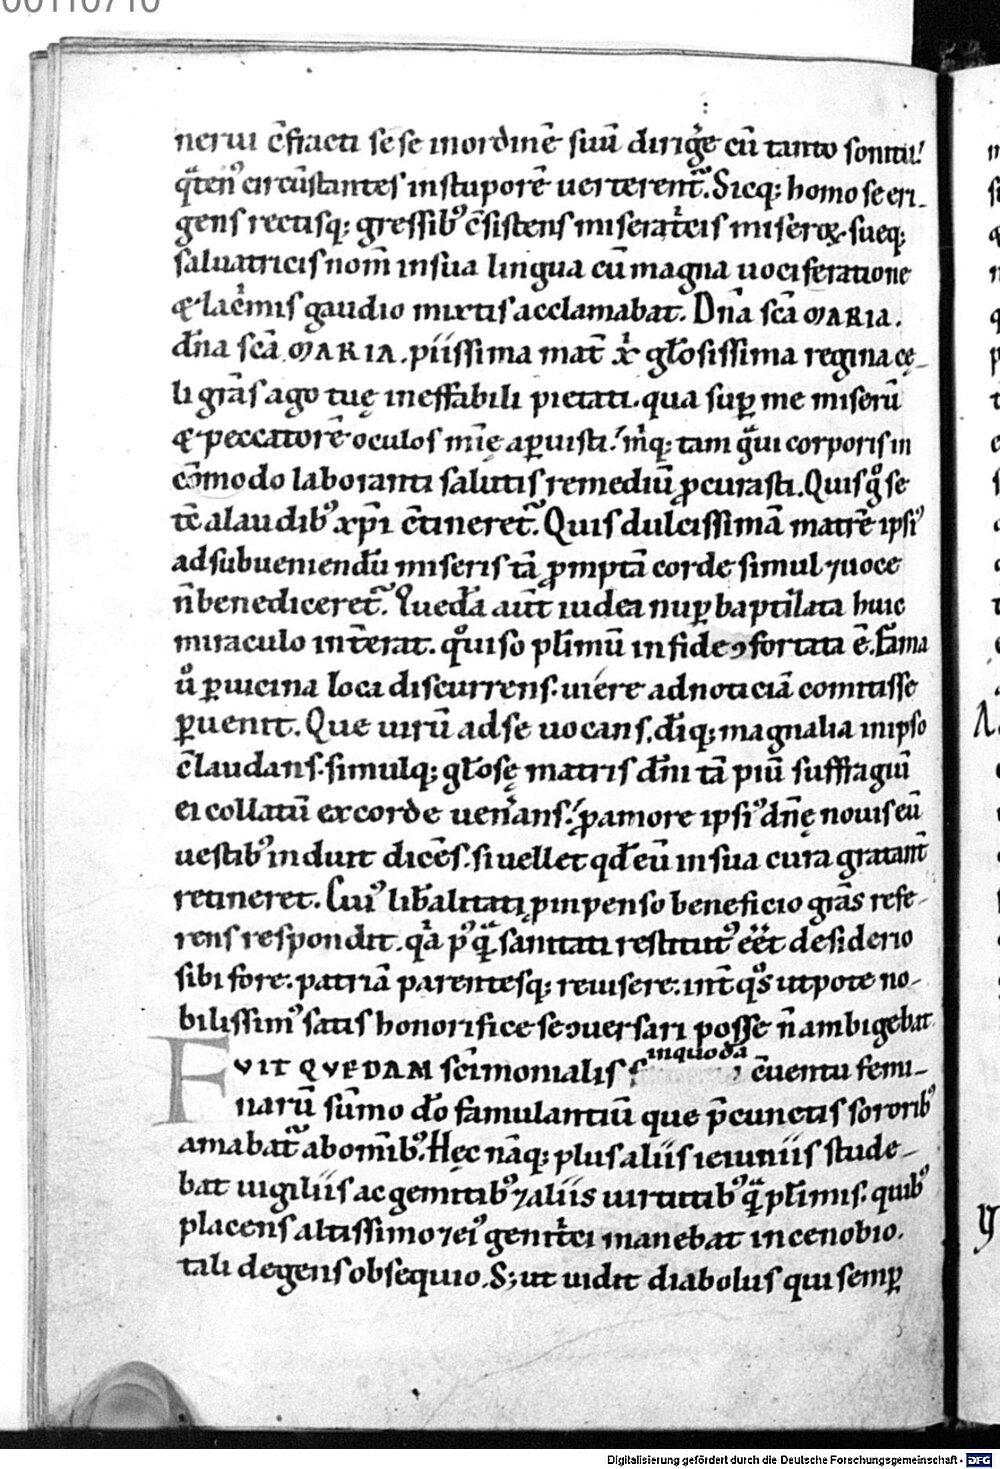 00110710
nerui c̄fracti sese in ordinē suū dirigͥe cū tanto sonitu!
qͣtenꝰ circūstantes in stuporē uerterent᷑. Sicq; homo se eri-
gens rectisq; gressibꝰ c̄sistens miseratͥcis miseroꝝ. sueq;
saluatricis nom̄ in sua lingua cū magna uociferatione
& lacͥmis gaudio mixtis acclamabat. Dn̄a sc̄a MARIA.
dn̄a sc̄a MARIA. piissima mat̄ xͥ gl̄osissima regina cę-
li grās ago tuę ineffabili pietati. qua suꝑ me miserū
& peccatorē oculos mīę aꝑuisti! mͥq; tam gͣui corporis in
cōmodo laboranti salutis remediū ꝓcurasti. Quis gͦ se
tē a laudibꝰ xp̄i c̄tineret᷑. Quis dulcissimā matrē ipsiꝰ
ad subueniendū miseris tā ꝓmptā corde simul ⁊ uoce
n̄ benediceret᷑. Quedā aūt iudea nuꝑ baptizata huic
miraculo int̄erat. qͦ uiso pl̄imū in fide ꝯfortata ē. Fama
uͦ ꝑ uicina loci discurrens. uiere ad noticiā comitisse
ꝑuenit. Que uirū ad se uocans. dīq; magnalia in ipso
c̄laudans. simulq; gl̄osę matris dn̄i tā piū suffragiū
ei collatū ex corde uenͥans! ꝓ amore ipsiꝰ dn̄ę nouis eū
uestibꝰ induit dicēs. si uellet qd̄ eū in sua cura gratant̄
retineret. Cuiꝰ lib̄alitati ꝓ inpenso beneficio grās refe-
rens respondit. qͥa pꝰqͣ sanitati restitutꝰ eēt desiderio
sibi fore: patriā parentesq; reuisere: int̄ qͦs utpote no-
bilissimꝰ satis honorifice se ꝯuersari posse n̄ ambigebat.
FVIT QVEDAM sc̄imonialis in quodā c̄uentu femi-
narū sūmo dō famulantiū que p̄ cunctis sororibꝰ
amabat᷑ ab om̄ibꝰ. Hęc nāq; plus aliis ieiuniis stude-
bat uigiliis ac gemitibꝰ ⁊ aliis uirtutibꝰ qͣ pl̄imis. quibꝰ
placens altissimo ⁊ eiꝰ genitͥci manebat in cenobio.
tali degens obsequio. S; ut uidit diabolus qui semꝑ
Digitalisierung gefördert durch die Deutsche Forschungsgemeinschaft - DFG